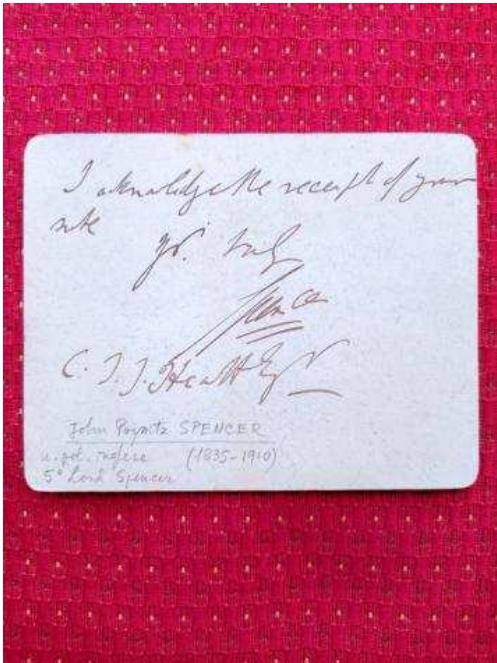 I aknolidge the receipt of your
note
yr. truly
Spencer
C. J. J. Heath Esqr
John Poyntz SPENCER
u. pol. inglese (1835-1910)
5° Lord Spencer